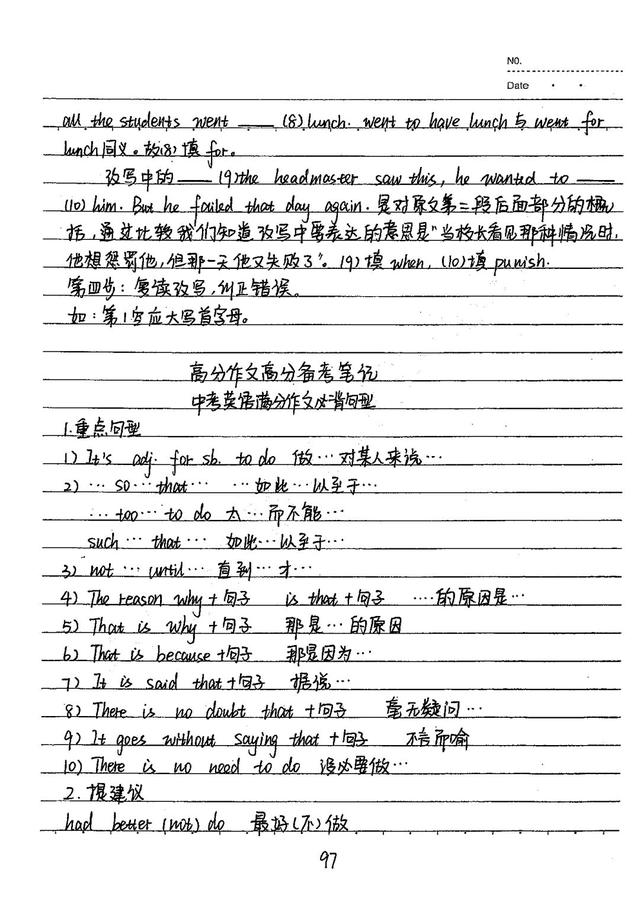 NO.
Date
all the students went ____ (8) lunch. went to have lunch与went for
lunch同义。故(8)填for。
改写中的____ (9) the headmaster saw this, he wanted to ____
(10) him. But he failed that day again. 是对原文第二段后面部分的概
括,通过比较我们知道改写中要表达的意思是“当校长看见那种情况时,
他想惩罚他,但那一天他又失败了”。(9)填when,(10)填punish.
第四步:复读改写,纠正错误。
如:第1空应大写首字母。
高分作文高分备考笔记
中考英语满分作文必背句型
1.重点句型
1) It's adj. for sb. to do 做…对某人来说…
2) … so … that … …如此…以至于…
… too … to do 太…而不能…
such … that … 如此…以至于…
3) not … until … 直到…才…
4) The reason why+句子 is that+句子 ….的原因是…
5) That is why+句子 那是…的原因
6) That is because+句子 那是因为…
7) It is said that+句子 据说…
8) There is no doubt that +句子 毫无疑问…
9) It goes without saying that +句子 不言而喻
10) There is no need to do 没必要做…
2.提建议
had better (not) do 最好(不)做
97